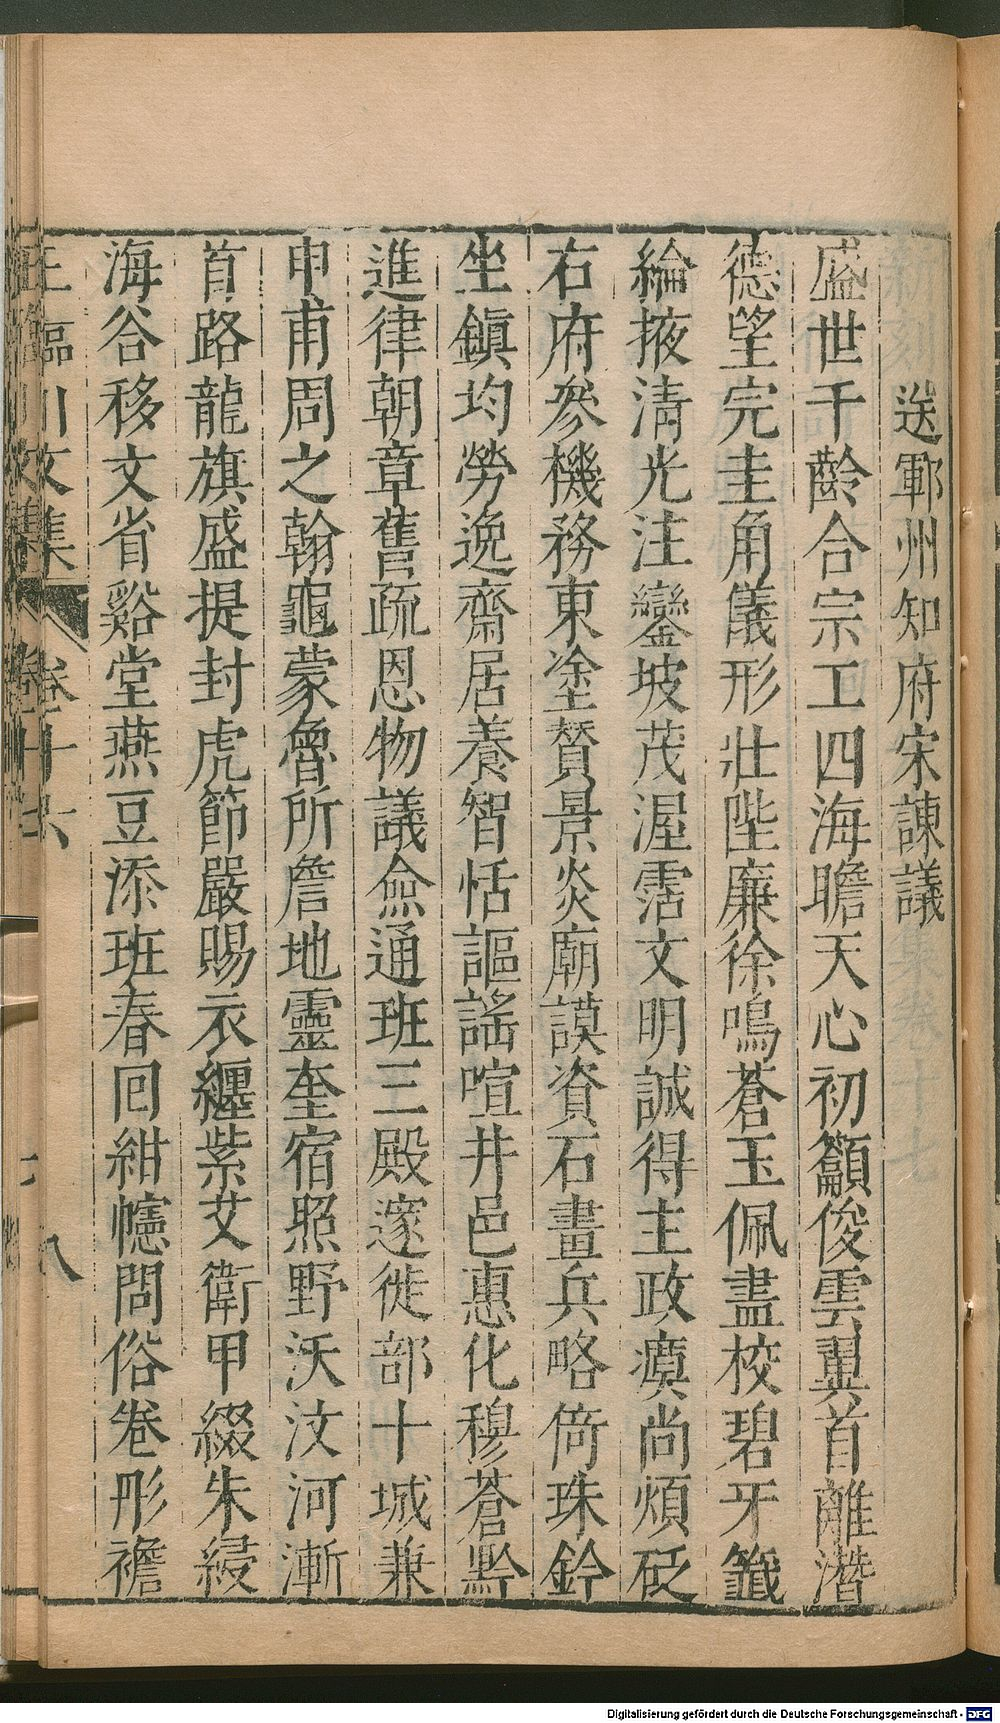 送鄆州知府宋諫議
盛世千齡合宗工四海瞻天心初籲俊雲翼首離潛
德望完圭角儀形壯陛廉徐鳴蒼玉佩盡校碧牙籤
綸掖清光注鑾坡茂渥霑文明誠得主政瘼尚煩砭
右府參機務東塗賛景炎廟謨資石畫兵略倚珠鈐
坐鎮均勞逸齋居養智恬謳謠喧井邑惠化穆蒼黔
進律朝章舊疏恩物議僉通班三殿邃徙部十城兼
申甫周之翰龜蒙魯所詹地靈奎宿照野沃汶河漸
首路龍旗盛提封虎節嚴賜衣纏紫艾衛甲綴朱綅
海谷移文省谿堂燕豆添班春囘紺幰問俗卷彤襜
王臨川文集
卷十六
八
Digitalisierung gefördert durch die Deutsche Forschungsgemeinschaft - DFG